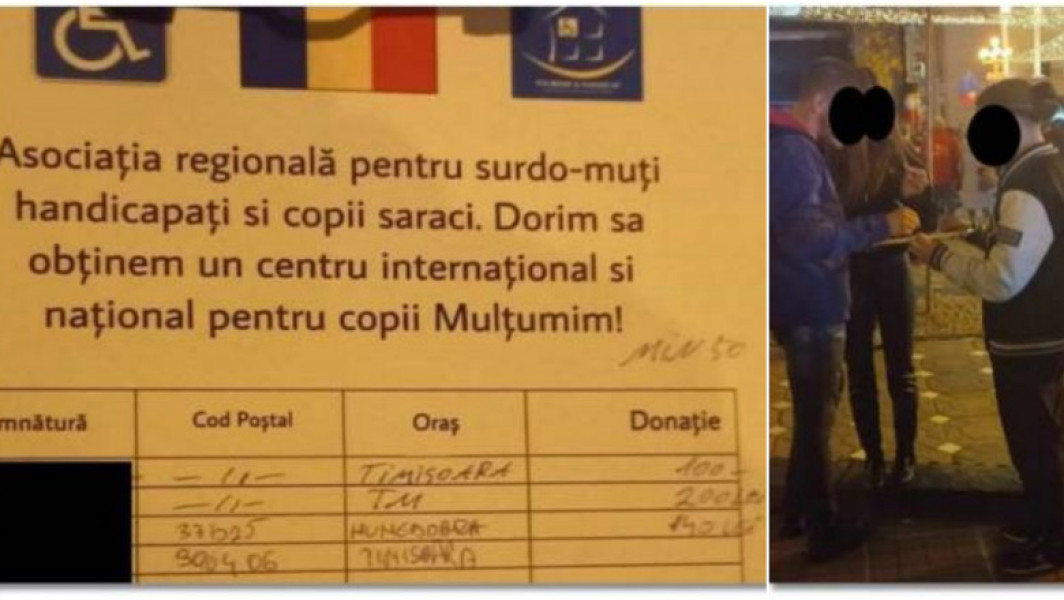 Asociația regională pentru surdo-muți
handicapați si copii saraci. Dorim sa
obținem un centru internațional si
național pentru copii Mulțumim!
MIN 50
mnătură Cod Poștal Oraș Donație
—//— TIMIȘOARA 100-
—//— TM 200
HUNEDOARA